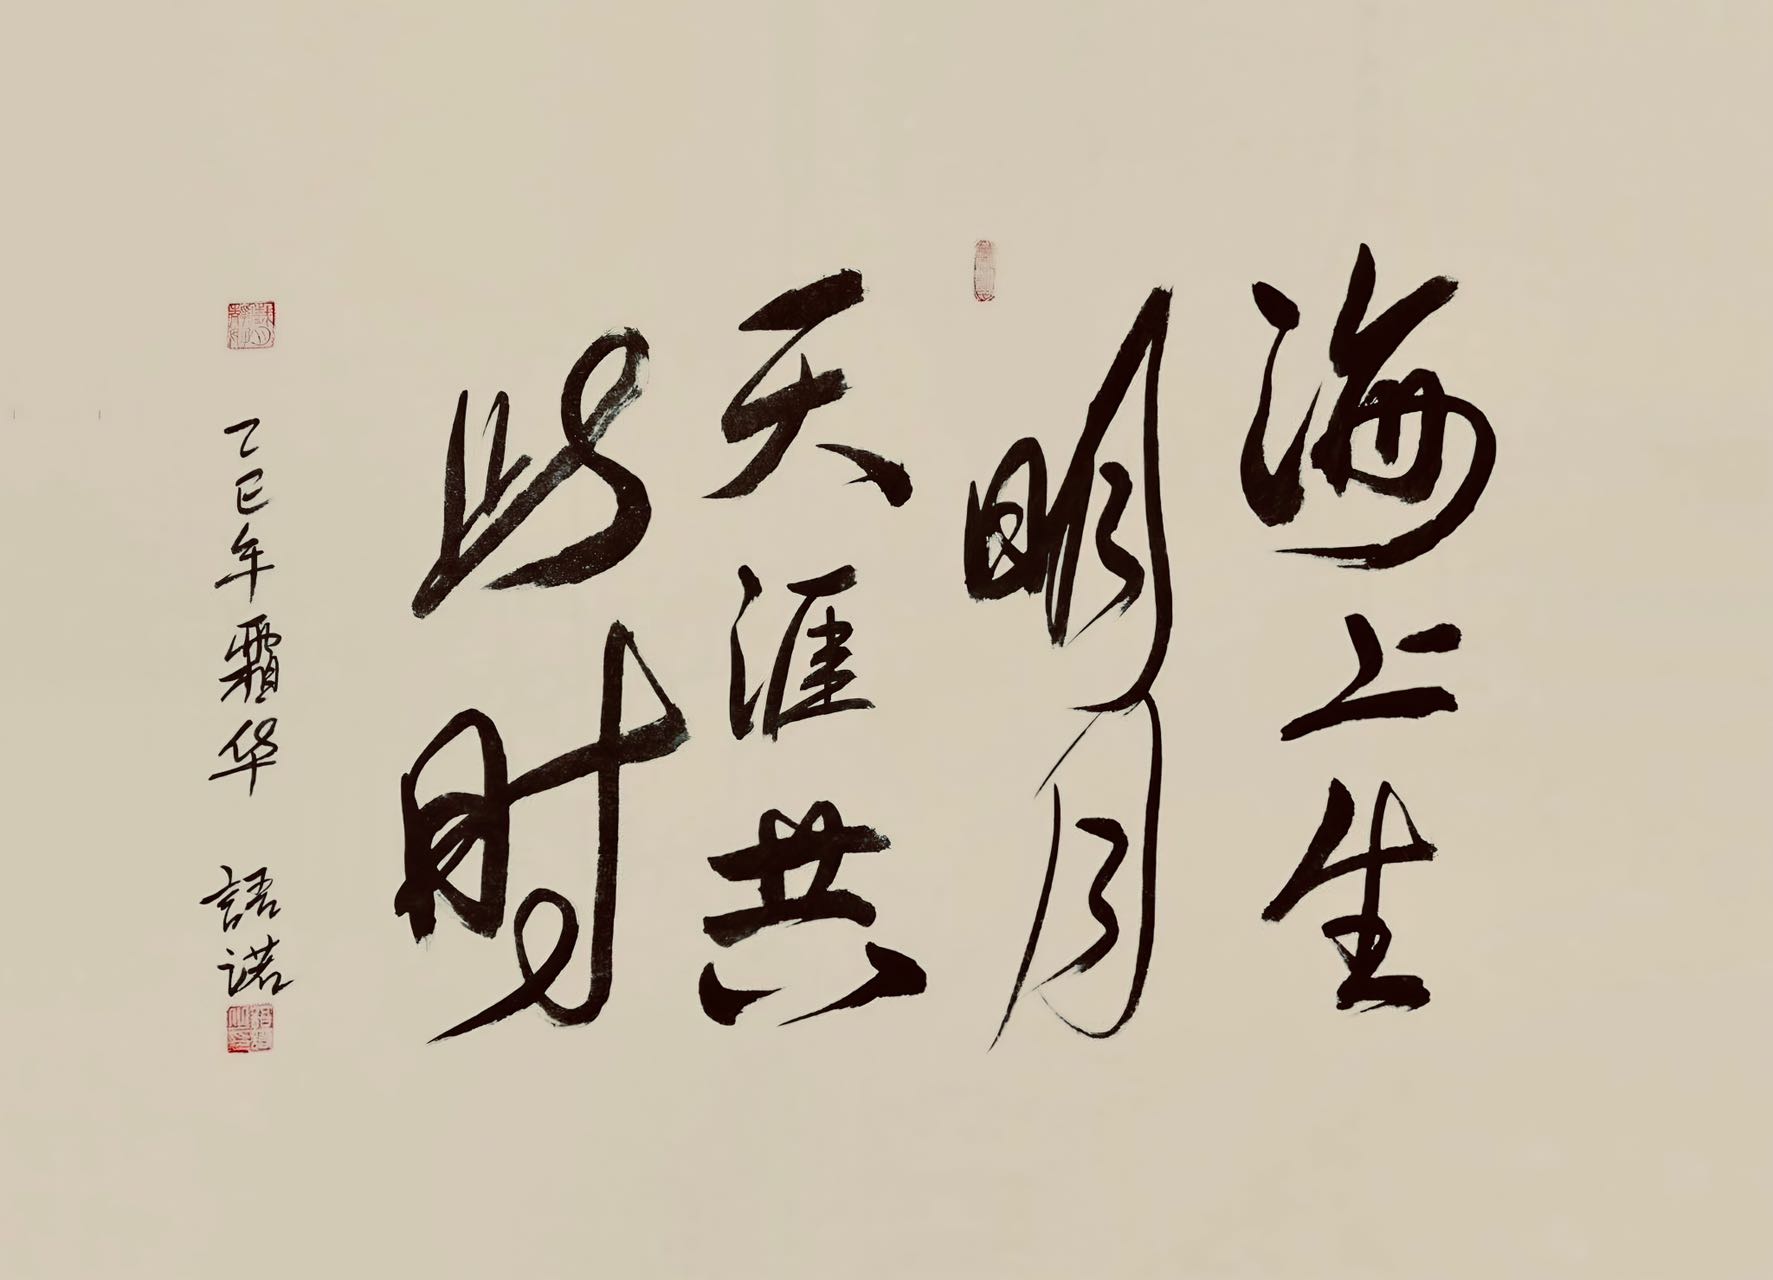 海上生
明月
天涯共
此时
乙巳年霜华 語诺